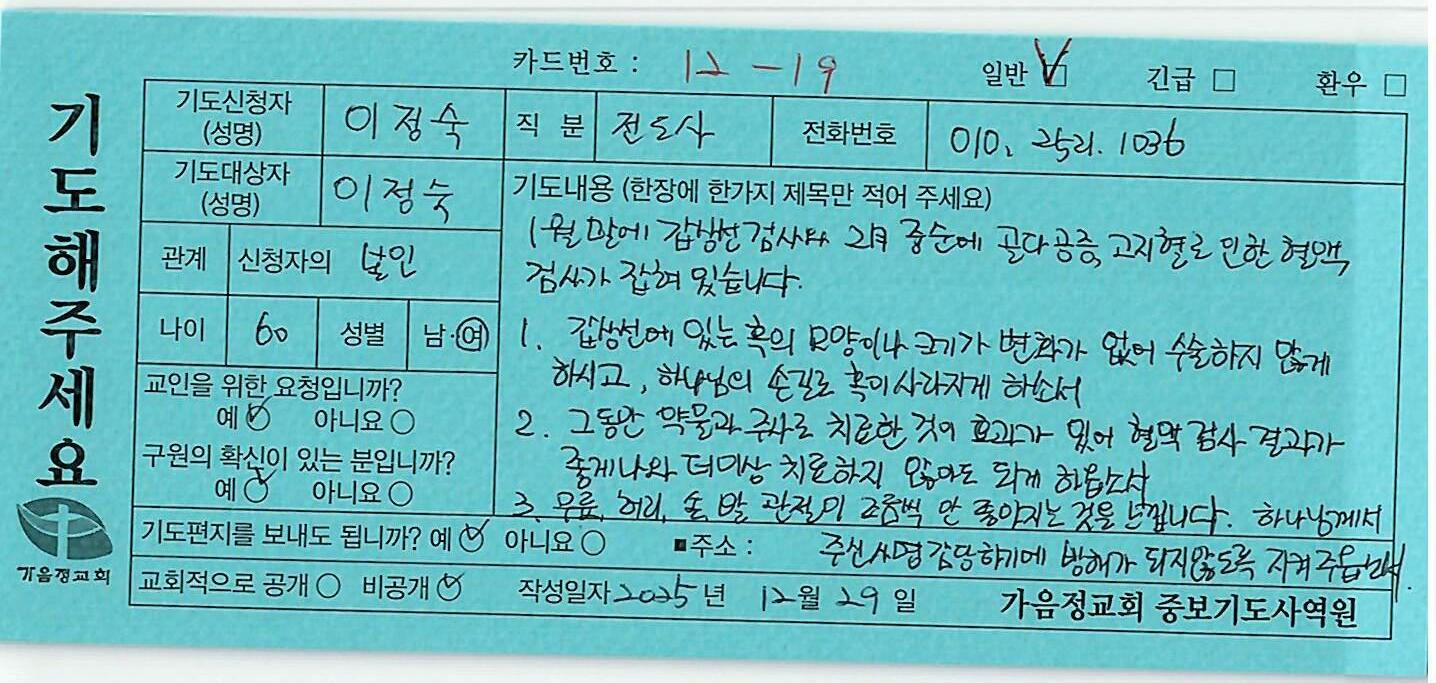 카드번호 : 12-19 일반 ☑ 긴급 □ 환우 □
기도해주세요
가음정교회
기도신청자 (성명) 이정숙 직 분 전도사 전화번호
기도대상자 (성명) 이정숙
관계 신청자의 본인
나이 60 성별 남·여
교인을 위한 요청입니까?
예 ✓ 아니요 ○
구원의 확신이 있는 분입니까?
예 ✓ 아니요 ○
기도내용 (한장에 한가지 제목만 적어 주세요)
1월 말에 갑상선 검사와 2월 중순에 골다공증, 고지혈로 인한 혈액
검사가 잡혀 있습니다.
1. 갑상선에 있는 혹의 모양이나 크기가 변화가 없어 수술하지 않게
하시고, 하나님의 손길로 혹이 사라지게 하소서
2. 그동안 약물과 주사로 치료한 것이 효과가 있어 혈액 검사 결과가
좋게 나와 더이상 치료하지 않아도 되게 하옵소서
3. 무릎, 허리, 손, 발 관절이 조금씩 안 좋아지는 것을 느낍니다. 하나님께서
주신 사명 감당하기에 방해가 되지않도록 지켜 주옵소서.
기도편지를 보내도 됩니까? 예 ✓ 아니요 ○ ■주소 :
교회적으로 공개 ○ 비공개 ✓ 작성일자 2025년 12월 29일 가음정교회 중보기도사역원